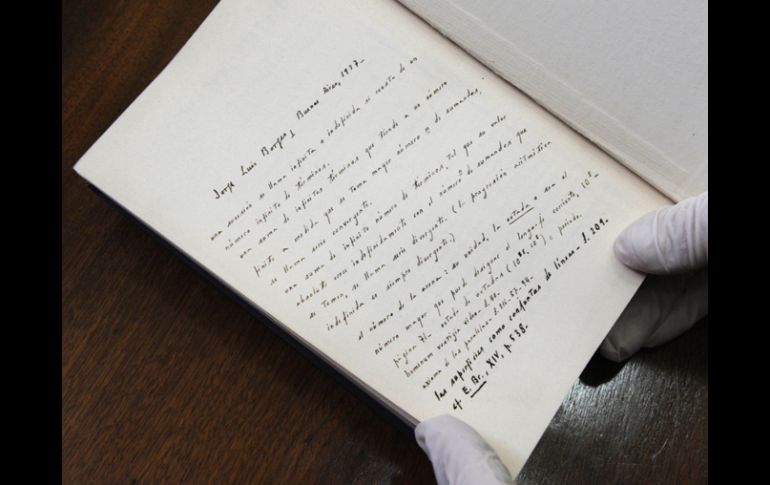 Jorge Luis Borges, Buenos Aires, 1937–
una sucesión se llama infinita o indefinida si consta de un
número infinito de términos.
una suma de infinitos términos que tiende a un número
finito, a medida que se toma mayor número de sumandos,
se llama serie convergente.
una suma de infinito número de términos, tal que su valor
absoluto crece indefinidamente con el número de sumandos que
se toman, se llama serie divergente. (la progresión aritmética
indefinida es siempre divergente.)
el número de la arena: su unidad, la octada o sea el
número mayor que puede designar el lenguaje corriente, 10⁸.
octada de octadas
hominum vestigia video.
axioma de las paralelas–
las superficies como conjuntos de líneas– p. 209.
cf. E. Br., XIV, p. 538.